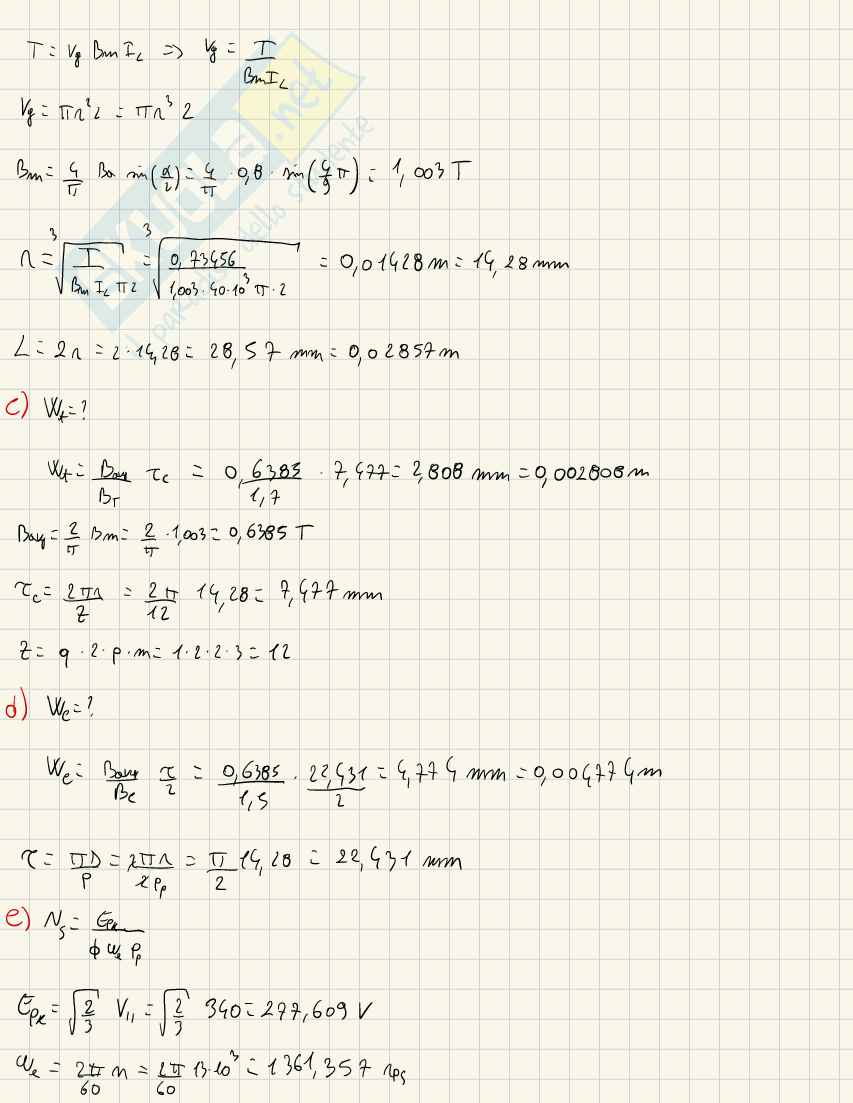 T = Vg Bm IL => Vg = T / (Bm IL)
Vg = πr²L = πr³ 2
Bm = 4/π Br sin(α/2) = 4/π · 0,8 · sin(4/9 π) = 1,003 T
r = ∛(T / (Bm IL π 2)) = ∛(0,73456 / (1,003 · 40·10³ π · 2)) = 0,01428 m = 14,28 mm
L = 2r = 2·14,28 = 28,57 mm = 0,02857 m
c) Wt = ?
Wt = Bavg/BT τc = 0,6385/1,7 · 7,477 = 2,808 mm = 0,002808 m
Bavg = 2/π Bm = 2/π · 1,003 = 0,6385 T
τc = 2πr/Z = 2π/12 14,28 = 7,477 mm
Z = q · 2 · p · m = 1·2·2·3 = 12
d) Wc = ?
Wc = Bavg/Bc τ/2 = 0,6385/1,5 · 22,431/2 = 4,774 mm = 0,004774 m
τ = πD/P = 2πr/(2Pp) = π/2 14,28 = 22,431 mm
e) Ns = Epk / (φ ωe Pp)
Epk = √(2/3) V11 = √(2/3) 340 = 277,609 V
ωe = 2π/60 n = 2π/60 13·10³ = 1361,357 rps
skuola.net
il paradiso dello studente